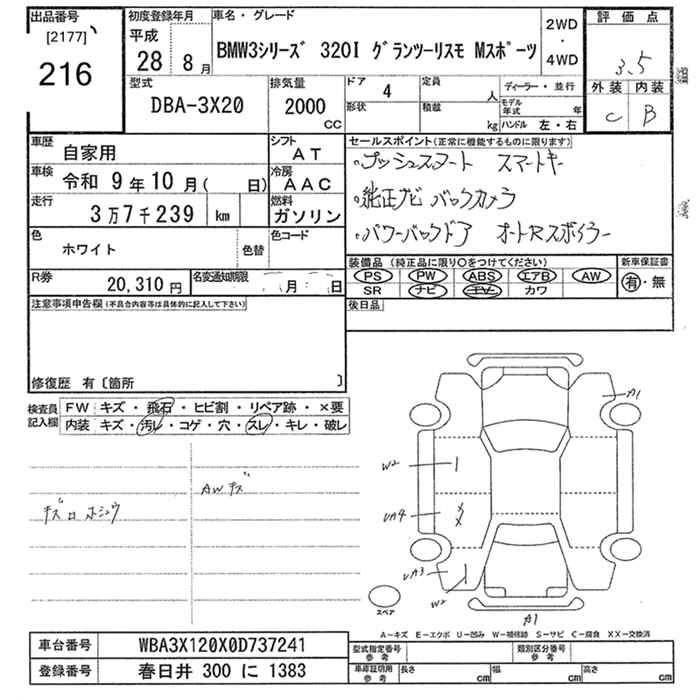 出品番号
[2177]
216
初度登録年月
平成
28年 8月
車名・グレード
BMW3シリーズ 320I グランツーリスモ Mスポーツ
2WD
・
4WD
評価点
3.5
外装 内装
C B
型式
DBA-3X20
排気量
2000
CC
ドア 4
形状
定員 人
積載 kg
ディーラー・並行
モデル年式 年
ハンドル 左・右
車歴 自家用
車検 令和 9年10月( 日)
走行 3万7千239 km
シフト AT
冷房 AAC
燃料 ガソリン
色 ホワイト 色替
色コード
R券 20,310円
名変通知期限 月 日
セールスポイント(正常に機能するものに限ります)
・プッシュスタート スマートキー
・純正ナビ バックカメラ
・パワーバックドア オートRスポイラー
装備品(純正品に限り○をつけてください)
PS PW ABS エアB AW
SR ナビ TV カワ
新車保証書
有・無
後日品
注意事項申告欄(不具合内容等は具体的に記入して下さい)
修復歴 有〔箇所 〕
検査員記入欄
FW キズ・飛石・ヒビ割・リペア跡・×要
内装 キズ・汚レ・コゲ・穴・スレ・キレ・破レ
AWキズ
キズロホシュウ
A1
W2
UA4
UA3
W2
A1
スペア
A-キズ E-エクボ U-凹み W-補修跡 S-サビ C-腐食 XX-交換済
車台番号 WBA3X120X0D737241
登録番号 春日井 300 に 1383
型式指定番号 参考
類別区分番号 参考
車庫証明用 参考
長さ cm
幅 cm
高さ cm